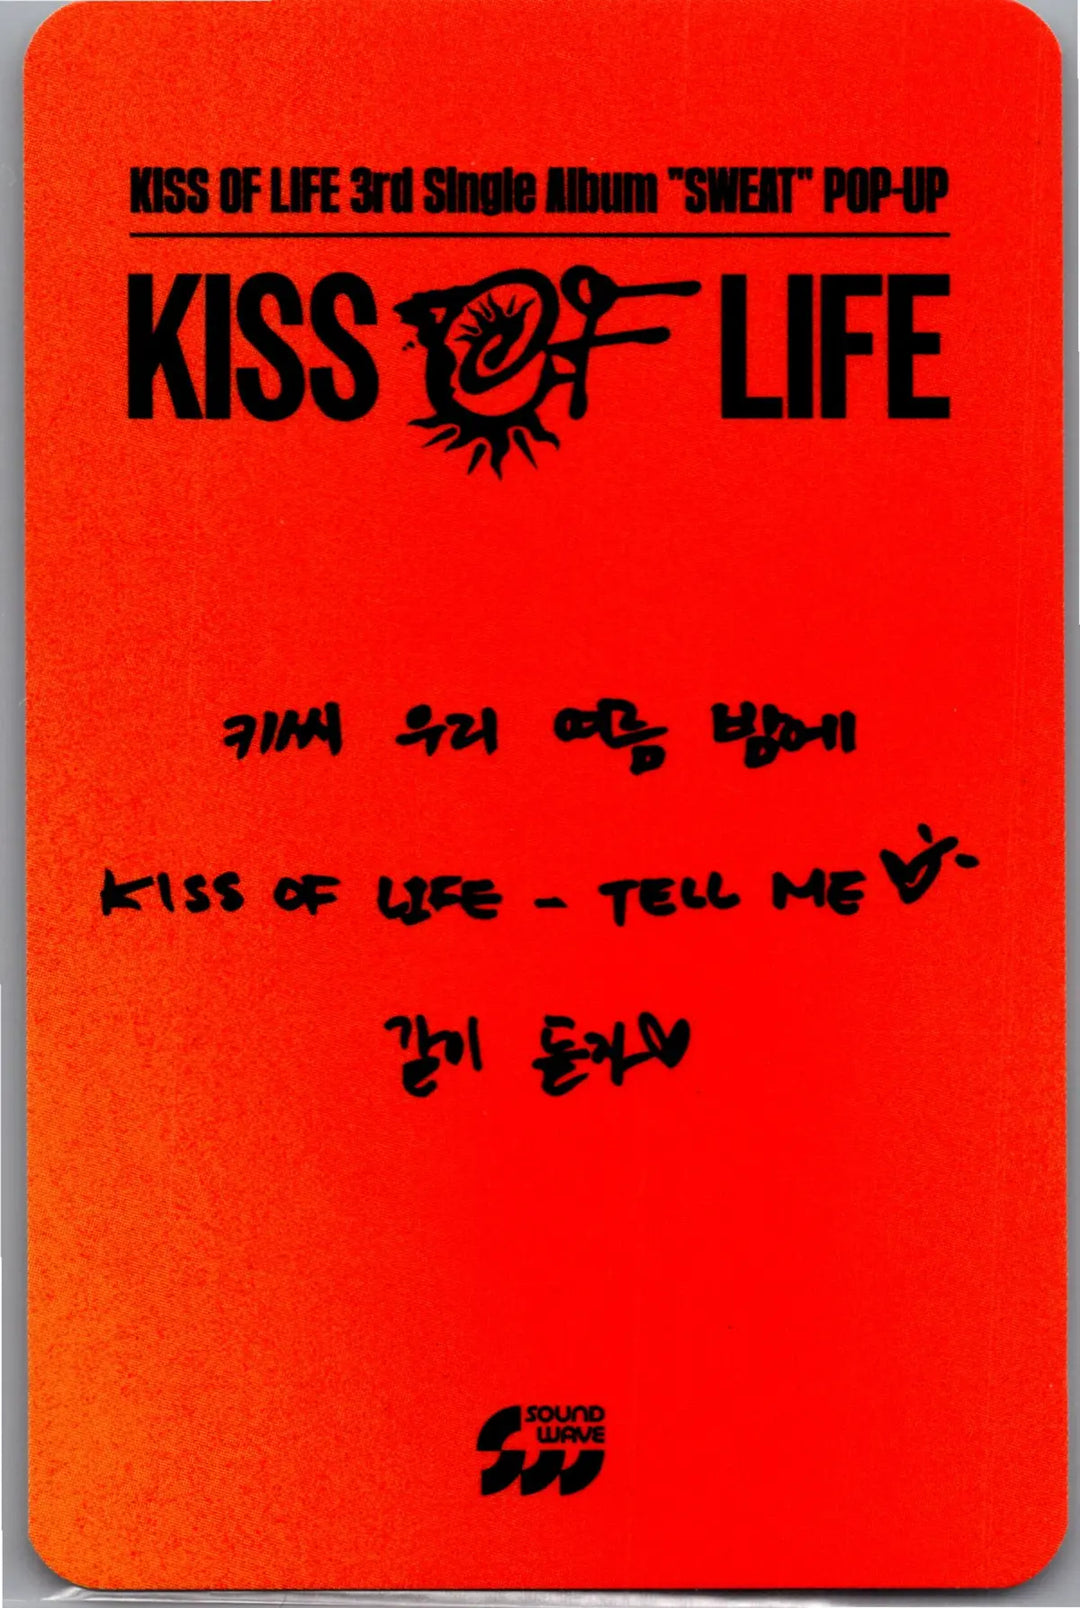 KISS OF LIFE 3rd Single Album "SWEAT" POP-UP
KISS OF LIFE
키씨 우리 여름 밤에
KISS OF LIFE - TELL ME
같이 듣자
SOUND
WAVE